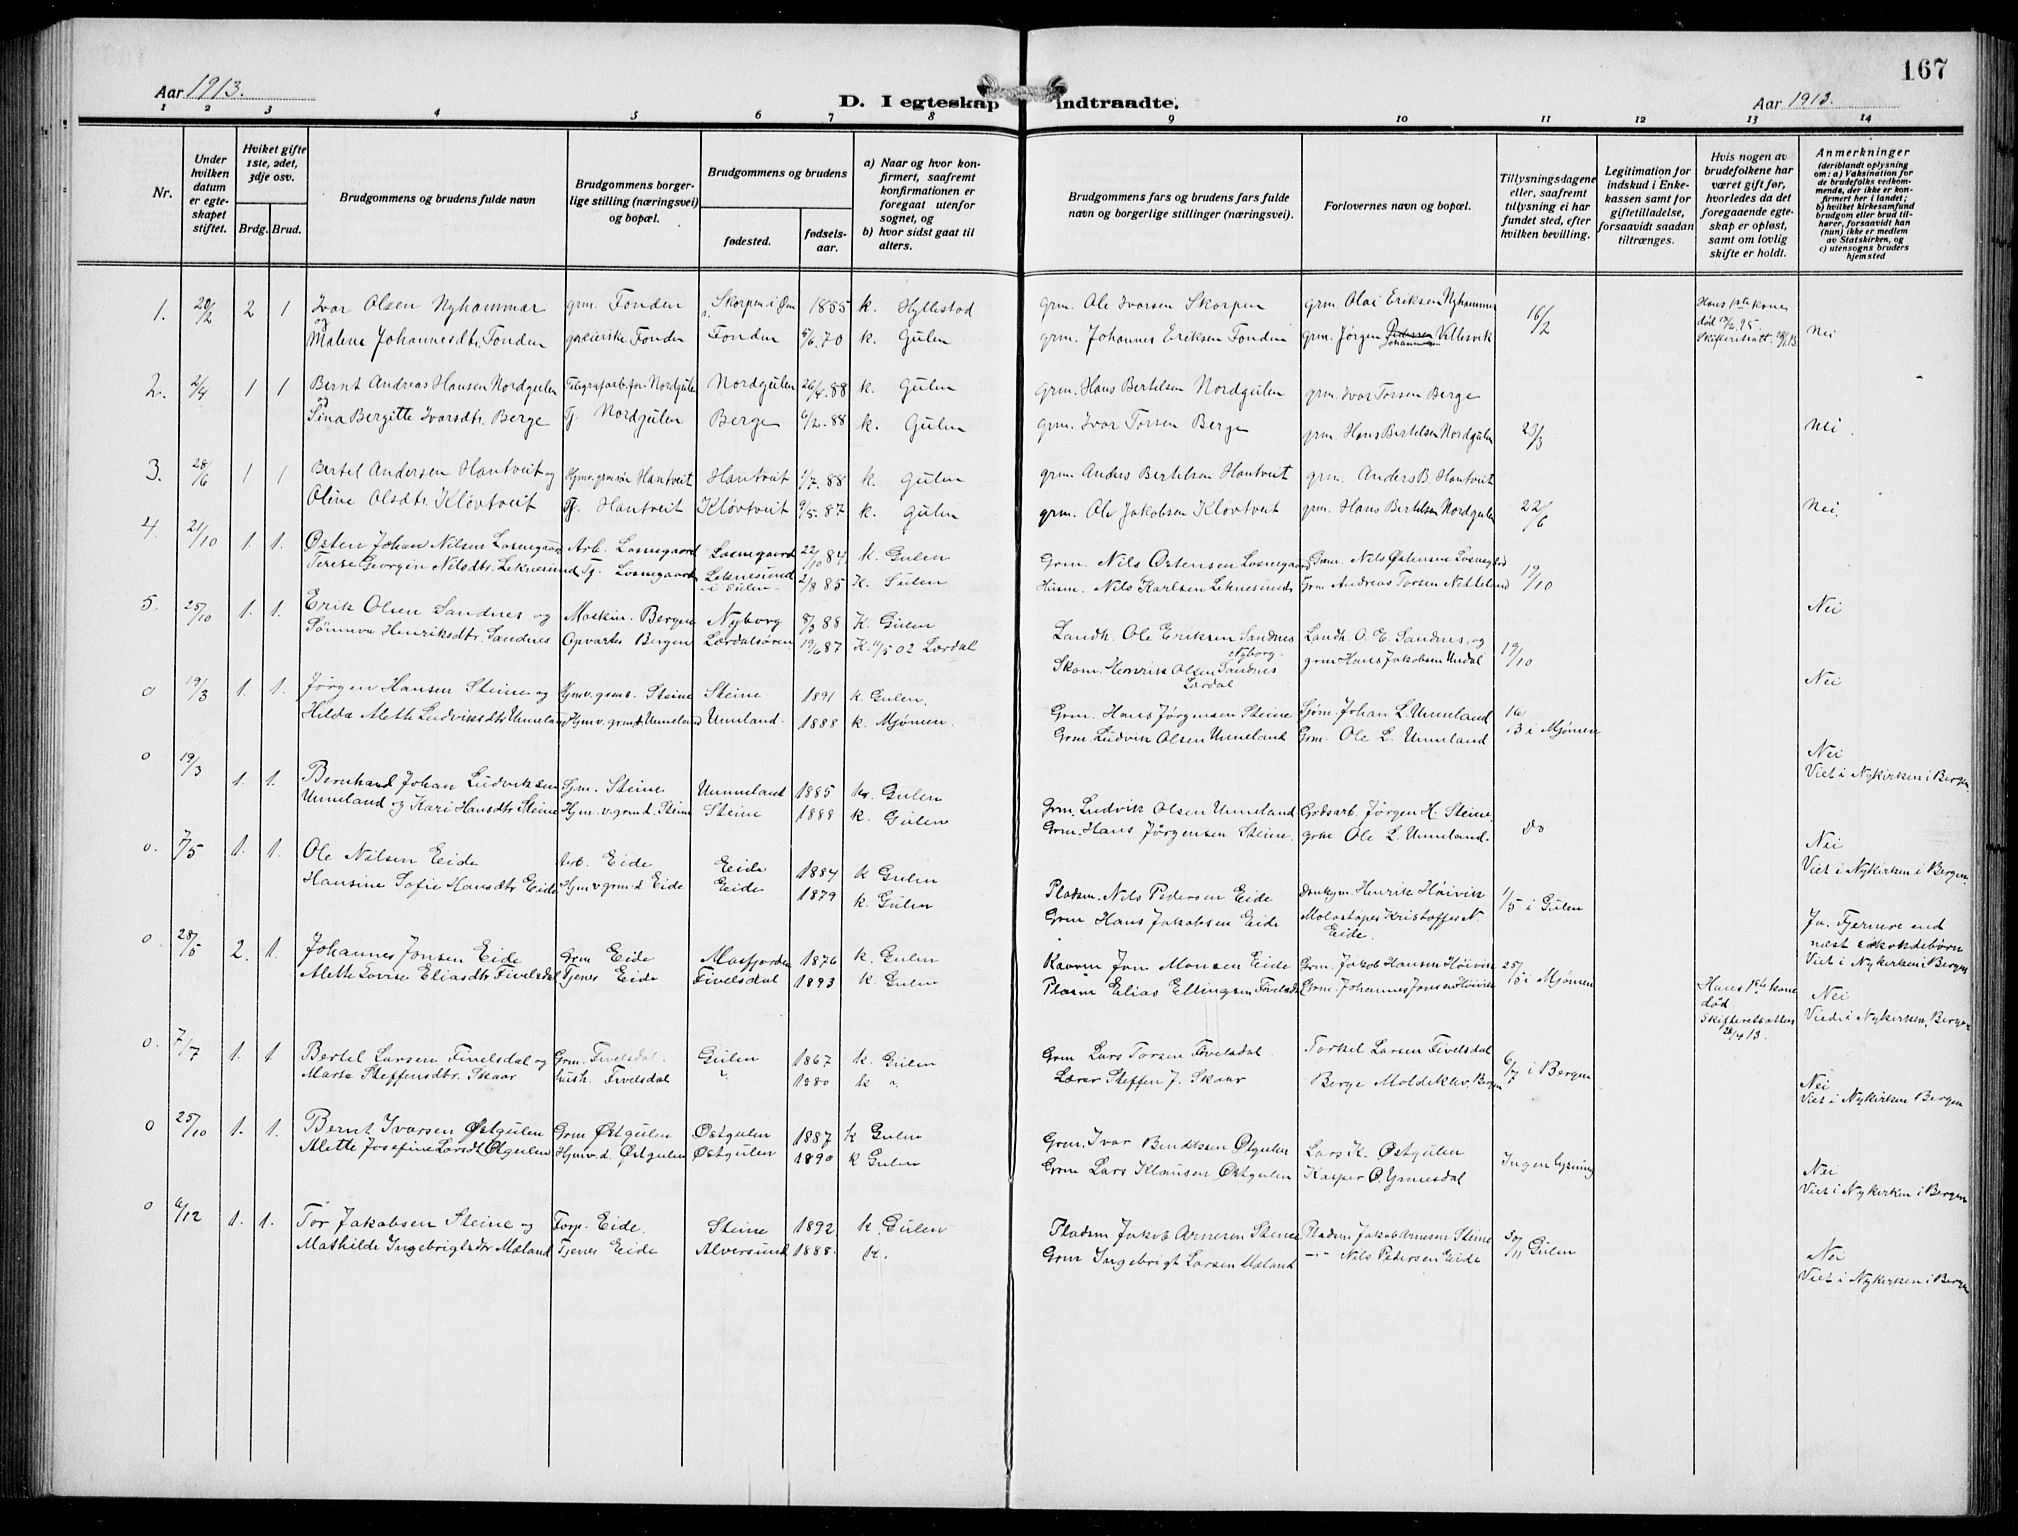 167
Aar 1913.
D. I egteskap indtraadte.
Aar 1913.
1 2 3 4 5 6 7 8 9 10 11 12 13 14
Nr.
Under hvilken datum er egteskapet stiftet.
Hviket gifte 1ste, 2det, 3dje osv.
Brdg. Brud.
Brudgommens og brudens fulde navn
Brudgommens borgerlige stilling (næringsvei) og bopæl.
Brudgommens og brudens
fødested.
fødselsaar.
a) Naar og hvor konfirmert, saafremt konfirmationen er foregaat utenfor sognet, og
b) hvor sidst gaat til alters.
Brudgommens fars og brudens fars fulde navn og borgerlige stillinger (næringsvei).
Forlovernes navn og bopæl.
Tillysningsdagene eller, saafremt tillysning ei har fundet sted, efter hvilken bevilling.
Legitimation for indskud i Enkekassen samt for giftetilladelse, forsaavidt saadan tiltrænges.
Hvis nogen av brudefolkene har været gift før, hvorledes da det foregaaende egteskap er opløst, samt om lovlig skifte er holdt.
Anmerkninger
(deriblandt oplysning om: a) Vaksination for de brudefolks vedkommende, der ikke er konfirmert her i landet; b) hvilket kirkesamfund brudgom eller brud tilhører, forsaavidt han (hun) ikke er medlem av Statskirken, og c) utensogns bruders hjemsted
1. 20/2 2 1 Ivar Olsen Nyhammar grm. Fonden Skorpen i 1855 k. Hyllestad grm. Ole Ivarsen Skorpen grm. Olai Eriksen Nyhammer 16/2 Hans 1ste kone
og
Malena Johannesdtr. Fonden Fonden Fonden 5/6.70 k. Gulen grm. Johannes Eriksen Fonden grm. Jørgen Villesvik død 95. Nei
2. 2/4 1 1 Bernt Andreas Hansen Nordgulen Nordgulen Nordgulen 26/4.88 k. Gulen grm. Hans Bertelsen Nordgulen grm. Ivar Torsen Berge
og
Sina Bergitte Ivarsdtr. Berge Tj. Nordgulen Berge 6/2.88 k. Gulen grm. Ivar Torsen Berge grm. Hans Bertelsen Nordgulen 23/3 Nei.
3. 28/6 1 1 Bertel Andersen Hantveit og Hjmv. grmsøn Hantveit Hantveit 1/7.88 k. Gulen grm. Anders Bertelsen Hantveit grm. Anders B. Hantveit
Oline Olsdtr. Kløvtveit Tj. Hantveit Kløvtveit 9/5.87 k. Gulen grm. Ole Jakobsen Kløvtveit grm. Hans Bertelsen Nordgulen 22/6 Nei.
4. 21/10 1. 1. Østen Johan Nilsen Losnegaard Arb. Losnegaard Losnegaard 22/10 84 k. Gulen Grm. Nils Østensen Losnegaard Grm. Nils Østensen Losnegård
Terese Georgin Nilsdtr. Leknesund Tj. Losnegaard Leknesund i Gulen 2/8 85 K. Gulen Husm. Nils Karlsen Leknesund Grm Andreas Torsen Netteland 19/10 Nei
5. 25/10 1. 1. Erik Olsen Sandnes og Maskin. Bergen Nyborg 8/3 88 K. Gulen Landh. Ole Eriksen Sandnes Nyborg. Landh. O. E. Sandnes, og
Sønneva Henriksdtr. Sandnes Opvarter Bergen Lærdalsøren 19/6 87 K. 11/5 02 Lærdal Skom. Henrik Olsen Sandnes Lærdal grm Hans Jakobsen Undal 19/10 Nei
0 19/3 1. 1. Jørgen Hansen Steine og Hjmv. grms. Steine Steine 1891 k. Gulen. Grm. Hans Jørgensen Steine Sjøm. Johan L. Unneland 16
Hilda Alette Ludviksdtr Unneland Hjmv. grmd. Unneland Unneland. 1888 k. Mjømen. Grm. Ludvik Olsen Unneland Grm. Ole L. Unneland 3 i Mjømen Nei
Viet i Nykirken i Bergen.
0 19/3 1. 1. Bernhard Johan Ludviksen Sjm. Steine Unneland 1885 k. Gulen Grm. Ludvik Olsen Unneland Grdsarb. Jørgen H. Steine.
Unneland og Kari Hansdtr Steine Hjm. v. grmd. Steine Steine 1888 k. Gulen Grm. Hans Jørgensen Steine. grm Ole L. Unneland. do Nei
Viet i Nykirken i Bergen.
0. 7/5 1. 1. Ole Nilsen Eide Arb. Eide Eide 1884 k Gulen Pladsm. Nils Pedersen Eide Henrik Høivik 1/5 i Gulen
Hansine Sofie Hansdtr Eide Hjm v grmd Eide Eide 1879 k. Gulen Grm Hans Jakobsen Eide Kristoffer N Eide. Ja. Fjernere end næst
Viet i Nykirken i Bergen
0 28/5 2. 1. Johannes Jonsen Eide Grm Eide Masfjorden 1876 k. Gulen Jon Monsen Eide Grm. Jakob Hansen Høivik 25/5 i Mjømen Hans 1ste kone død
Alette Lovise Eliasdtr Fivelsdal Tjener Eide Fivelsdal 1893 k. Gulen Pladsm Elias Ellingsen Fivelsdal Grm. Johannes Jonsen Høivik Skifteretsattest 28/4 13. Nei
Viede i Nykirken, Bergen
0. 7/7 1. 1 Bertel Larsen Fivelsdal og Grm. Fivelsdal. Gulen 1867 k. Gulen Grm Lars Torsen Fivelsdal. Torkel Larsen Fivelsdal 6/7 i Bergen
Marta Steffensdtr. Skaar hush. Fivelsdal " 1880 k " Lærer Steffen J. Skaar Berge Moldeklev, Bergen Nei
Viet i Nykirken Bergen
0 25/10 1. 1. Bernt Ivarsen Østgulen Grm Østgulen Østgulen 1887 k Gulen Grm. Ivar Bendiksen Østgulen Lars K. Østgulen Ingen lysning
Alette Josefine Larsdt Østgulen Hjmv. d. Østgulen Østgulen 1890 k Gulen Grm Lars Klausen Østgulen Kasper O. Nei
Viet i Nykirken i Bergen
0 6/12 1. 1. Tor Jakobsen Steine og Forp. Eide. Steine 1892 k. Gulen Pladsm Jakob Arnesen Steine Pladsm Jakob Arnesen Steine 30/11 Gulen
Mathilde Ingebrigtsdtr Mæland Tjener Eide Alversund 1888. k. Grm Ingebrigt Larsen Mæland -"- Nils Pedersen Eide Nei
Viet i Nykirken i Bergen